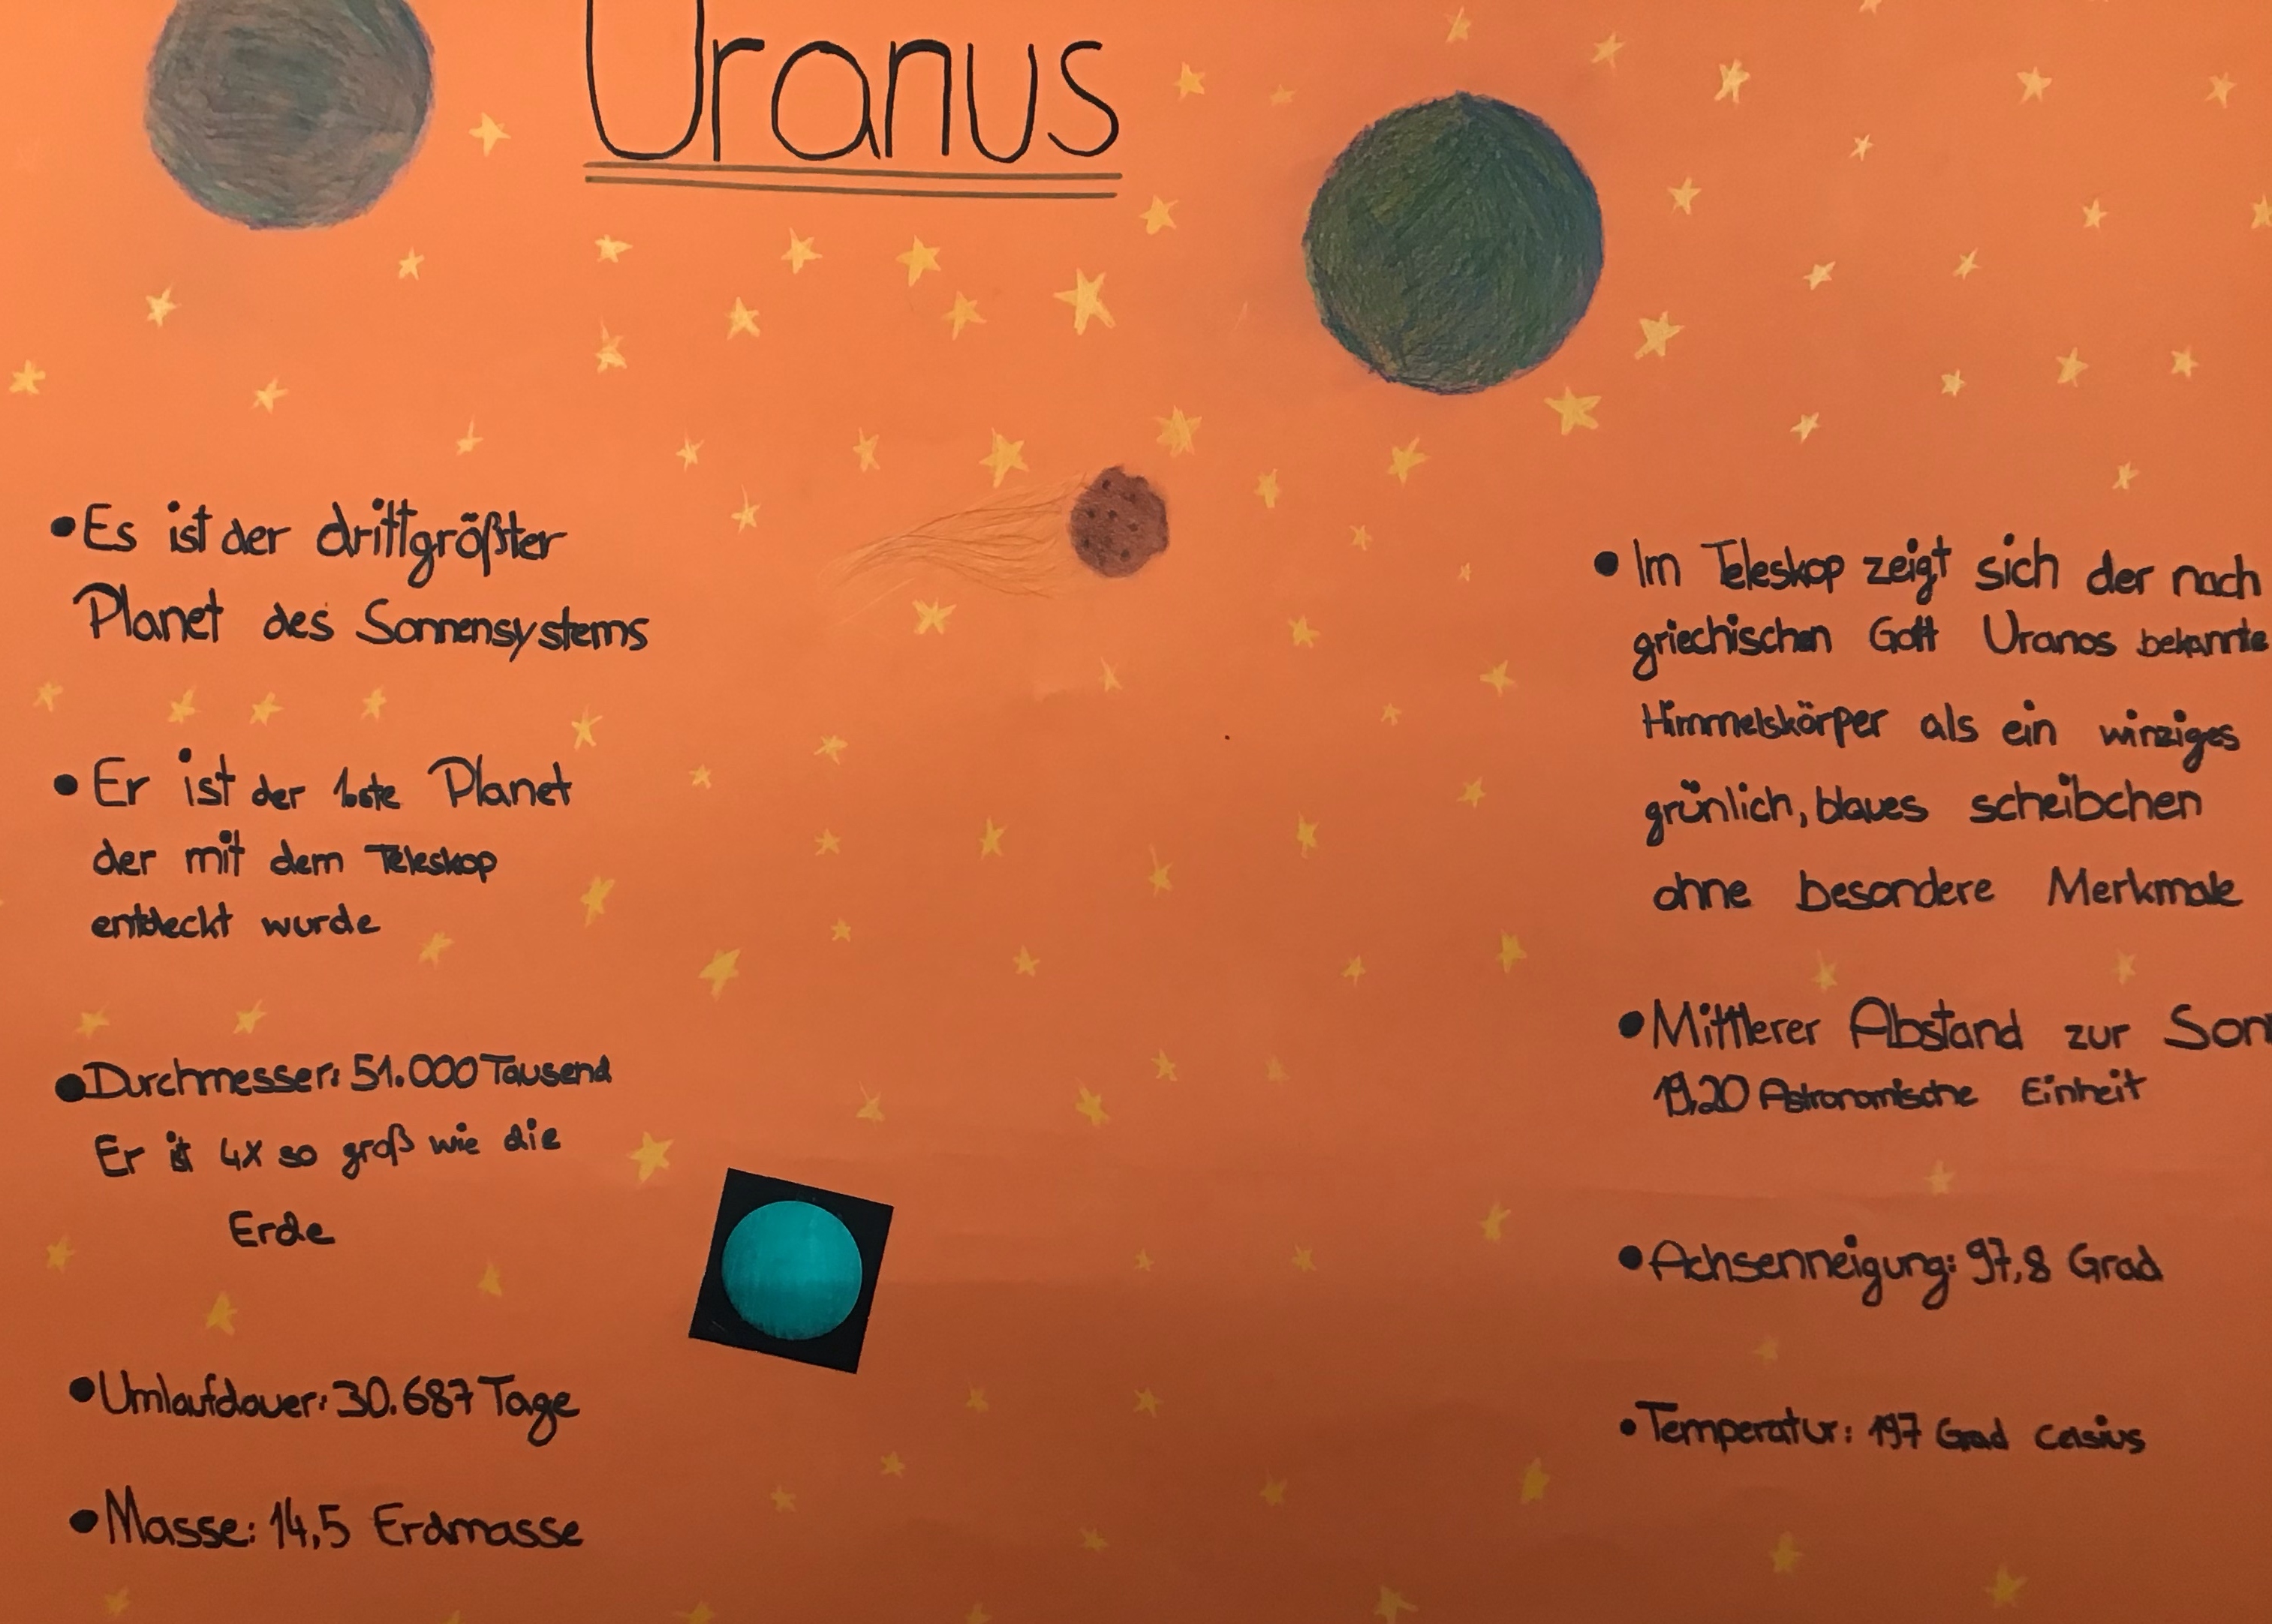 Uranus
• Es ist der drittgrößter
Planet des Sonnensystems
• Er ist der 1ste Planet
der mit dem Teleskop
entdeckt wurde
• Durchmesser: 51.000 Tausend
Er ist 4x so groß wie die
Erde
• Umlaufdauer: 30.687 Tage
• Masse: 14,5 Erdmasse
• Im Teleskop zeigt sich der nach
griechischen Gott Uranos bekannte
Himmelskörper als ein winziges
grünlich, blaues scheibchen
ohne besondere Merkmale
• Mittlerer Abstand zur Son
19,20 Astronomische Einheit
• Achsenneigung: 97,8 Grad
• Temperatur: 197 Grad Celsius